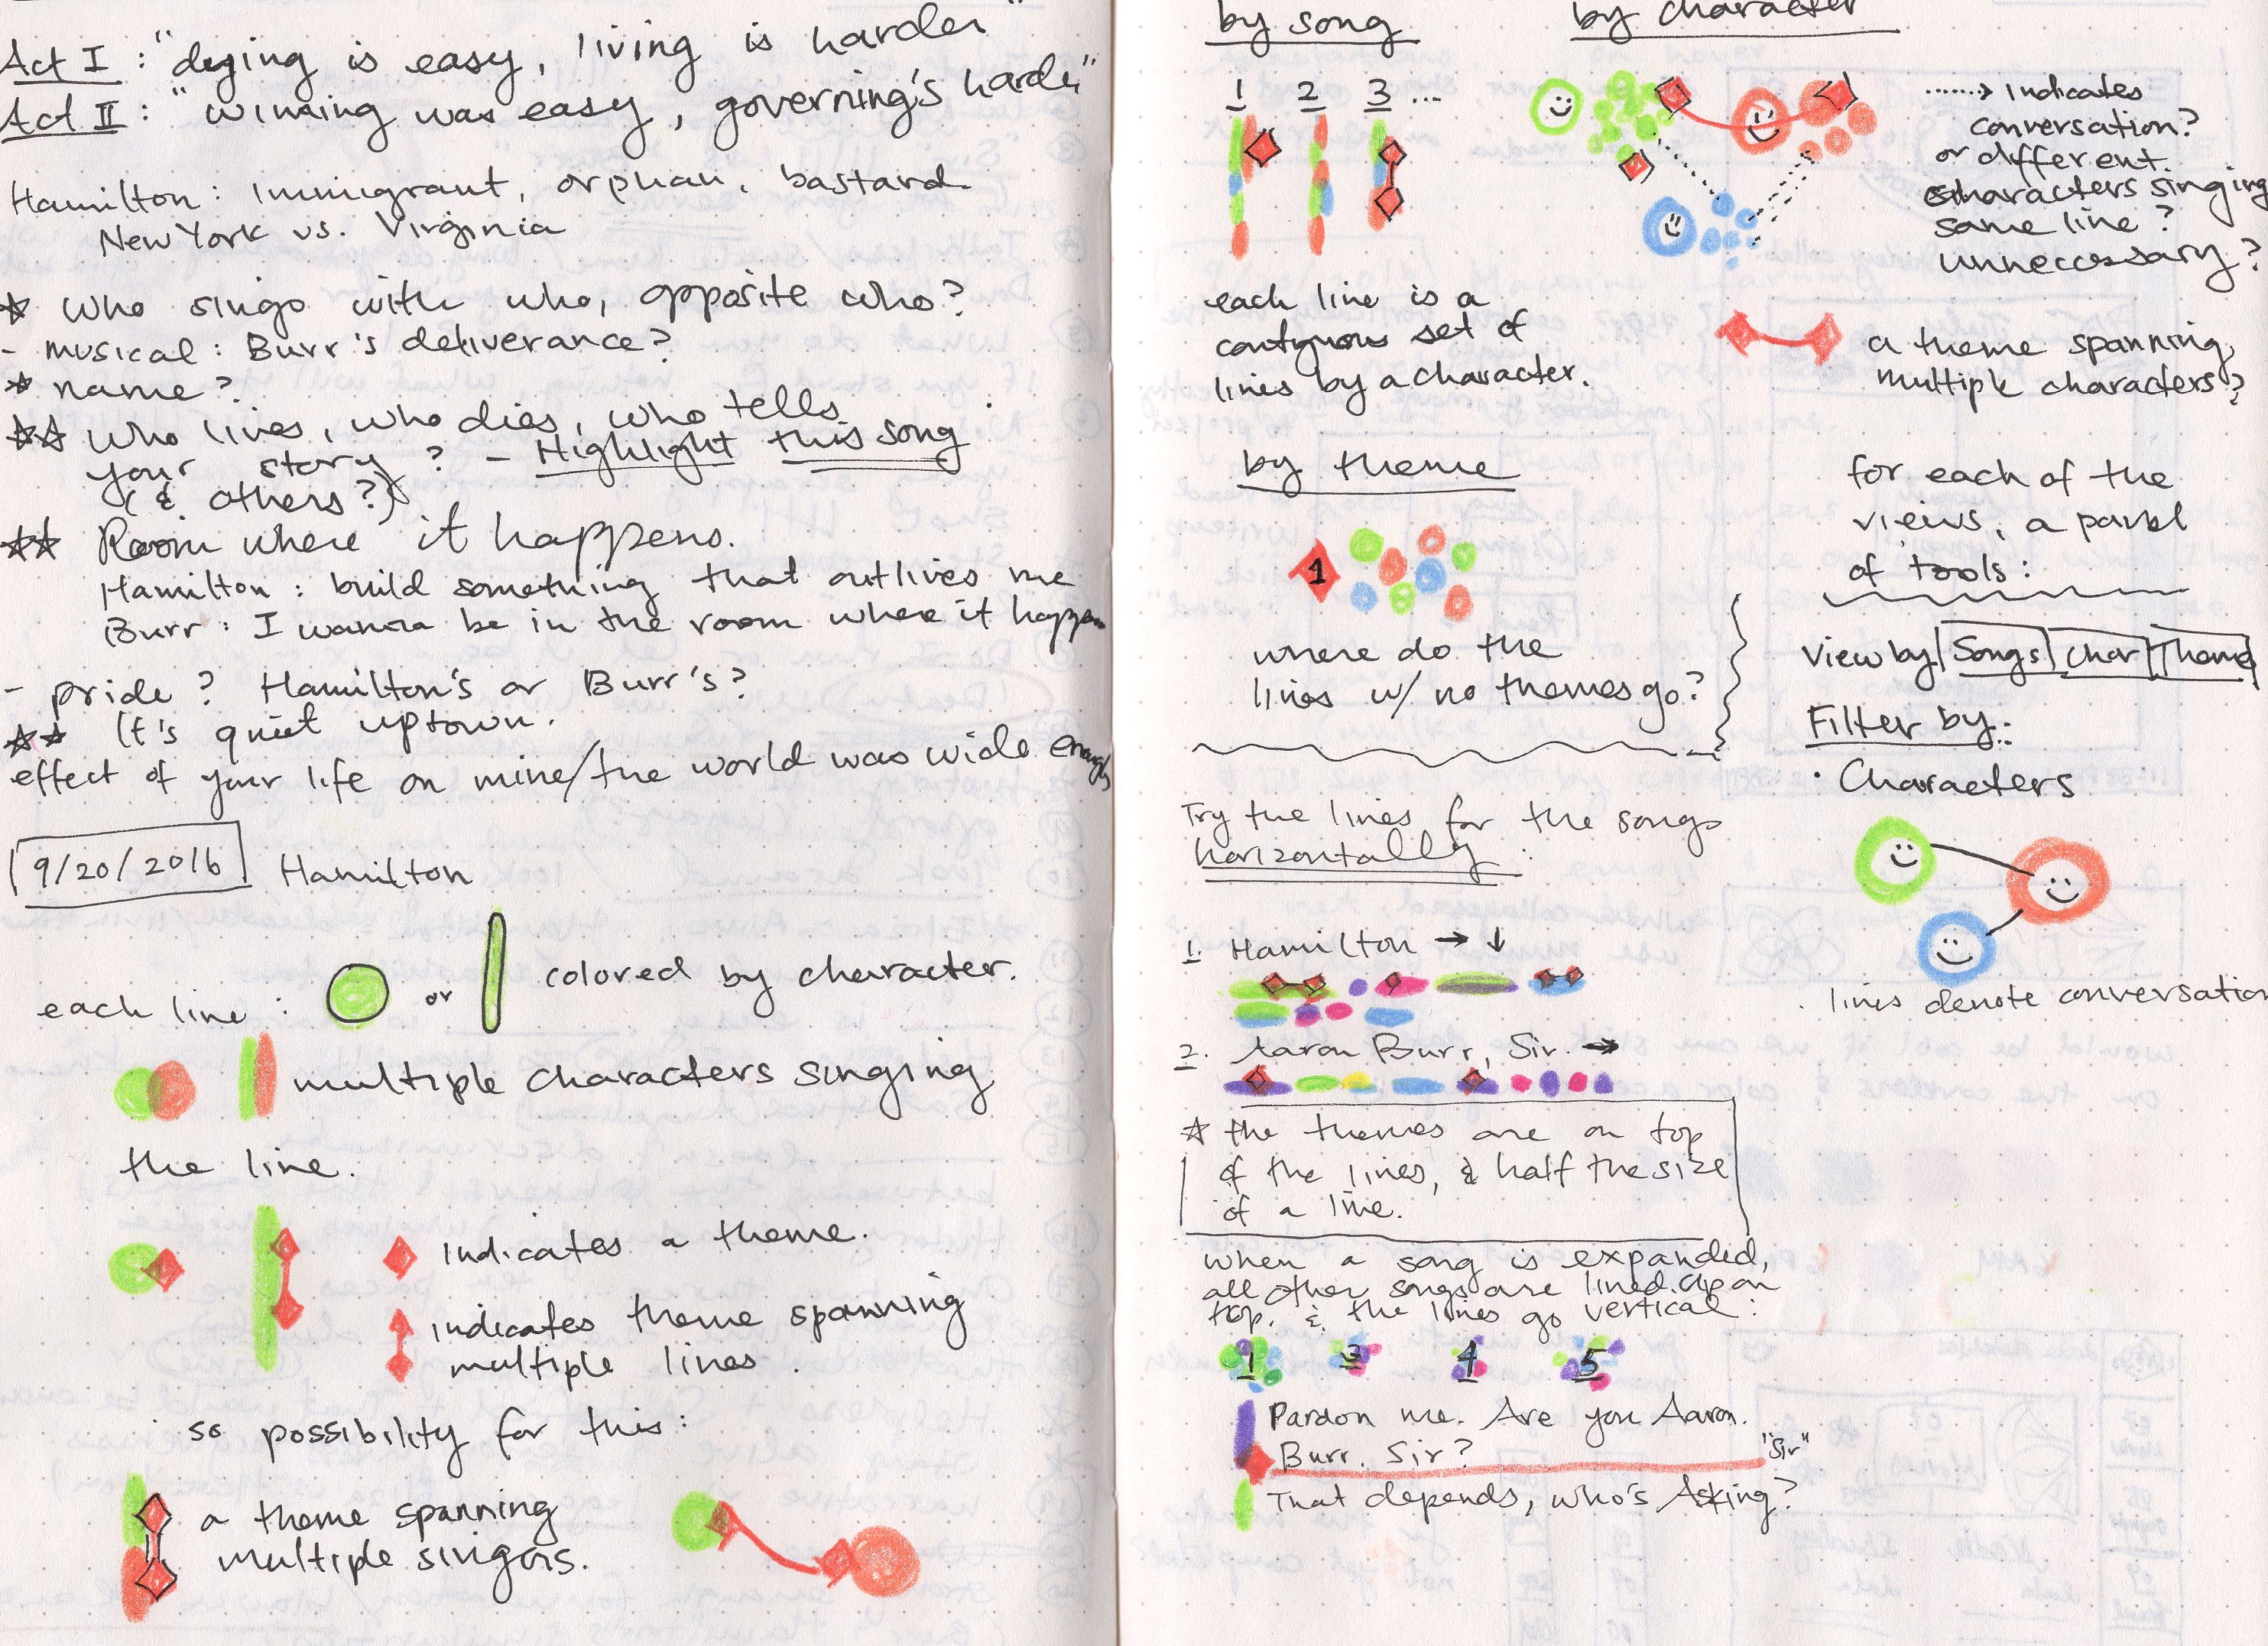 Act I : "dying is easy, living is harder"
Act II : "winning was easy, governing's harder"
Hamilton : immigrant, orphan, bastard
New York vs. Virginia
☆ who sings with who, opposite who?
- musical : Burr's deliverance?
☆ name?
☆☆ Who lives, who dies, who tells
your story ? - Highlight this song
(& others?)
☆☆ Room where it happens.
Hamilton : build something that outlives me
Burr : I wanna be in the room where it happen
- pride ? Hamilton's or Burr's?
☆☆ It's quiet uptown.
effect of your life on mine/the world was wide enough
9/20/2016 Hamilton
each line : or colored by character.
multiple characters singing
the line.
indicates a theme.
indicates theme spanning
multiple lines.
so possibility for this :
a theme spanning
multiple singers.
by song
1 2 3 ...
each line is a
contiguous set of
lines by a character.
by character
......> indicates
conversation?
or different
characters singing
same line ?
unnecessary?
a theme spanning
multiple characters?
by theme
1
where do the
lines w/ no themes go?
for each of the
views, a panel
of tools :
View by Songs Char Theme
Filter by :
· Characters
· lines denote conversation
Try the lines for the songs
horizontally :
1. Hamilton → ↓
2. Aaron Burr, Sir. →
☆ the themes are on top
of the lines, & half the size
of a line.
when a song is expanded,
all other songs are lined up on
top. & the lines go vertical :
1 3 4 5
Pardon me. Are you Aaron.
Burr. Sir? "Sir"
That depends, who's Asking?